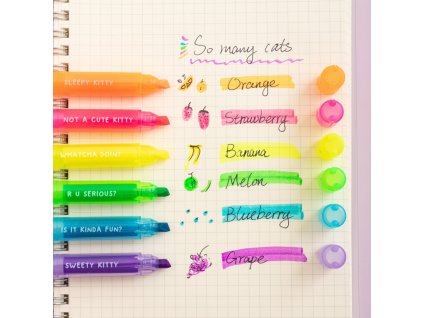 So many cats
SLEEPY KITTY
Orange
NOT A CUTE KITTY
Strawberry
WHATCHA DOIN?
Banana
R U SERIOUS?
Melon
IS IT KINDA FUN?
Blueberry
SWEETY KITTY
Grape